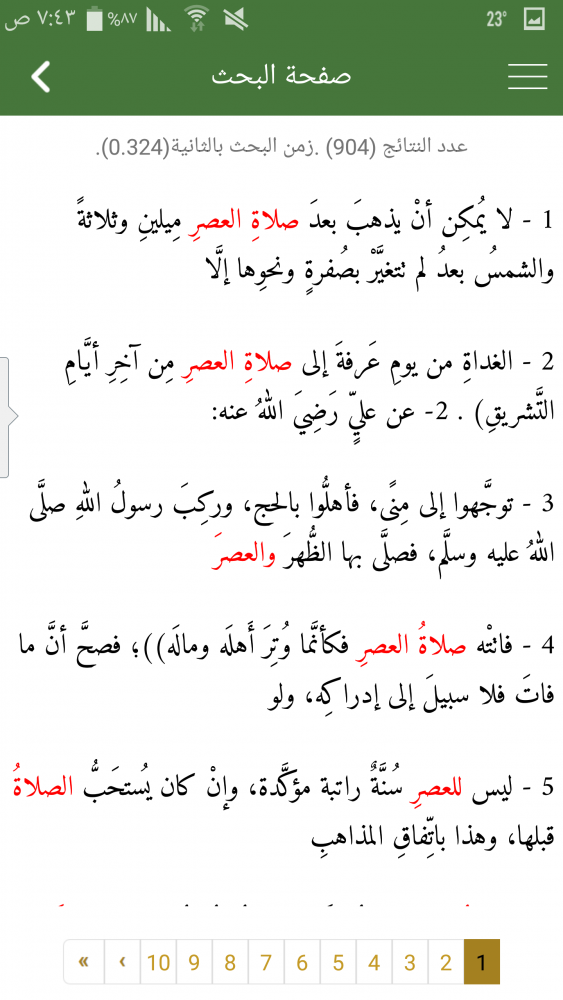 ٧:٤٣ ص %٨٧ 23°
صفحة البحث
عدد النتائج (904) .زمن البحث بالثانية(0.324).
1 - لا يُمكِن أنْ يذهبَ بعدَ صلاةِ العصرِ مِيلينِ وثلاثةً
والشمسُ بعدُ لم تتغيَّرْ بصُفرةٍ ونحوِها إلَّا
2 - الغداةِ من يومِ عَرفةَ إلى صلاةِ العصرِ مِن آخِرِ أيَّامِ
التَّشريقِ) . 2- عن عليٍّ رَضِيَ اللهُ عنه:
3 - توجَّهوا إلى مِنًى، فأهلُّوا بالحج، وركِبَ رسولُ اللهِ صلَّى
اللهُ عليه وسلَّم، فصلَّى بها الظُّهرَ والعصرَ
4 - فاتتْه صلاةُ العصرِ فكأنَّما وُتِرَ أَهلَه ومالَه))؛ فصحَّ أنَّ ما
فاتَ فلا سبيلَ إلى إدراكِه، ولو
5 - ليس للعصرِ سُنَّةٌ راتبة مؤكَّدة، وإنْ كان يُستحَبُّ الصلاةُ
قبلها، وهذا باتِّفاقِ المذاهبِ
1 2 3 4 5 6 7 8 9 10 › »